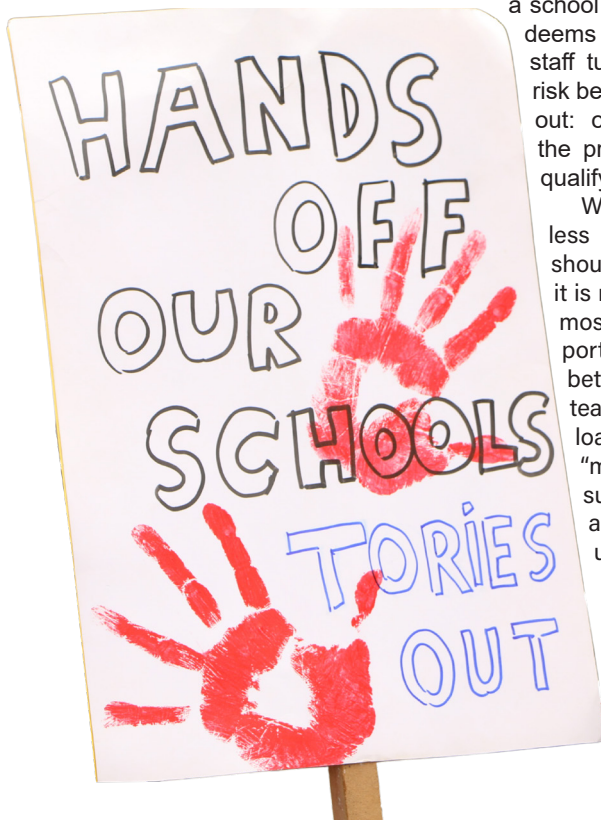 HANDS
OFF
OUR
SCHOOLS
TORiES
OUT
a school
deems
staff tu
risk be
out: o
the pr
qualify
W
less
shou
it is r
mos
port
bet
tea
loa
“m
su
a
u